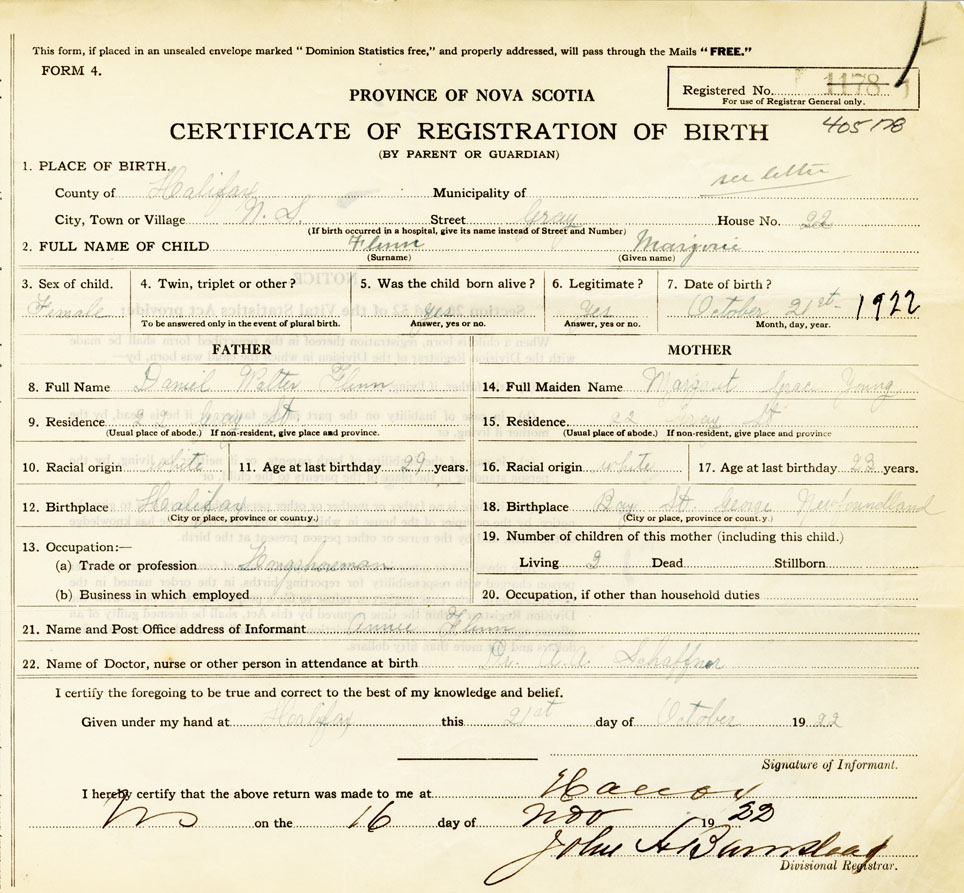 This form, if placed in an unsealed envelope marked "Dominion Statistics free," and properly addressed, will pass through the Mails "FREE."
FORM 4.
Registered No. 1178
For use of Registrar General only.
PROVINCE OF NOVA SCOTIA
405178
CERTIFICATE OF REGISTRATION OF BIRTH
(BY PARENT OR GUARDIAN)
1. PLACE OF BIRTH.
see letter
County of Halifax Municipality of
City, Town or Village N. S. Street Gray House No. 22
(If birth occurred in a hospital, give its name instead of Street and Number)
2. FULL NAME OF CHILD Flinn Marjorie
(Surname) (Given name)
3. Sex of child. 4. Twin, triplet or other? 5. Was the child born alive? 6. Legitimate? 7. Date of birth?
Female yes Yes October 21st 1922
To be answered only in the event of plural birth. Answer, yes or no. Answer, yes or no. Month, day, year.
FATHER MOTHER
8. Full Name Daniel Walter Flinn 14. Full Maiden Name Margaret Grace Young
9. Residence 22 Gray St 15. Residence. 22 Gray St
(Usual place of abode.) If non-resident, give place and province. (Usual place of abode.) If non-resident, give place and province
10. Racial origin white 11. Age at last birthday 29 years. 16. Racial origin white 17. Age at last birthday 23 years.
12. Birthplace Halifax 18. Birthplace Bay St. George Newfoundland
(City or place, province or country.) (City or place, province or county.)
13. Occupation:— 19. Number of children of this mother (including this child.)
(a) Trade or profession Longshoreman Living 2 Dead Stillborn
(b) Business in which employed 20. Occupation, if other than household duties
21. Name and Post Office address of Informant Annie Flinn
22. Name of Doctor, nurse or other person in attendance at birth Dr. A. A. Schaffner
I certify the foregoing to be true and correct to the best of my knowledge and belief.
Given under my hand at Halifax this 21st day of October 1922
Signature of Informant.
I hereby certify that the above return was made to me at Halifax
NS on the 16 day of Nov 1922
John A Burnstead
Divisional Registrar.